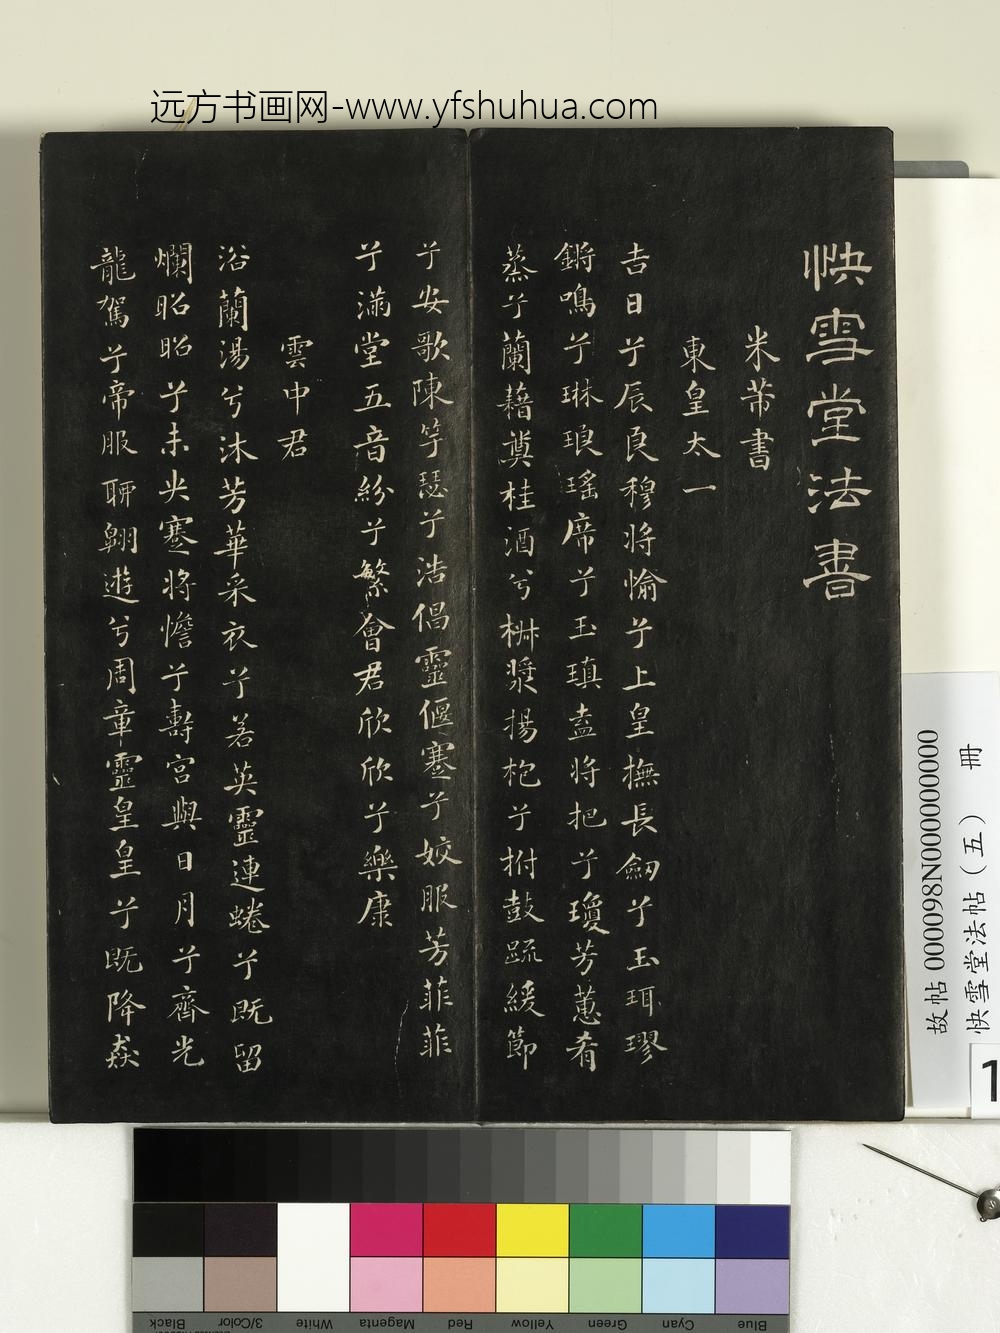 远方书画网-www.yfshuhua.com
快雪堂法書
米芾書
東皇太一
吉日兮辰良穆將愉兮上皇撫長劒兮玉珥璆
鏘鳴兮琳琅瑤席兮玉瑱盍將把兮瓊芳蕙肴
蒸兮蘭藉奠桂酒兮椒漿揚枹兮拊鼓疏緩節
兮安歌陳竽瑟兮浩倡靈偃蹇兮姣服芳菲菲
兮滿堂五音紛兮繁會君欣欣兮樂康
雲中君
浴蘭湯兮沐芳華采衣兮若英靈連蜷兮既留
爛昭昭兮未央蹇將憺兮壽宮與日月兮齊光
龍駕兮帝服聊翱遊兮周章靈皇皇兮既降猋
故帖 000098N000000000
快雪堂法帖（五） 冊
1
Black
3/Color
White
Magenta
Red
Yellow
Green
Cyan
Blue